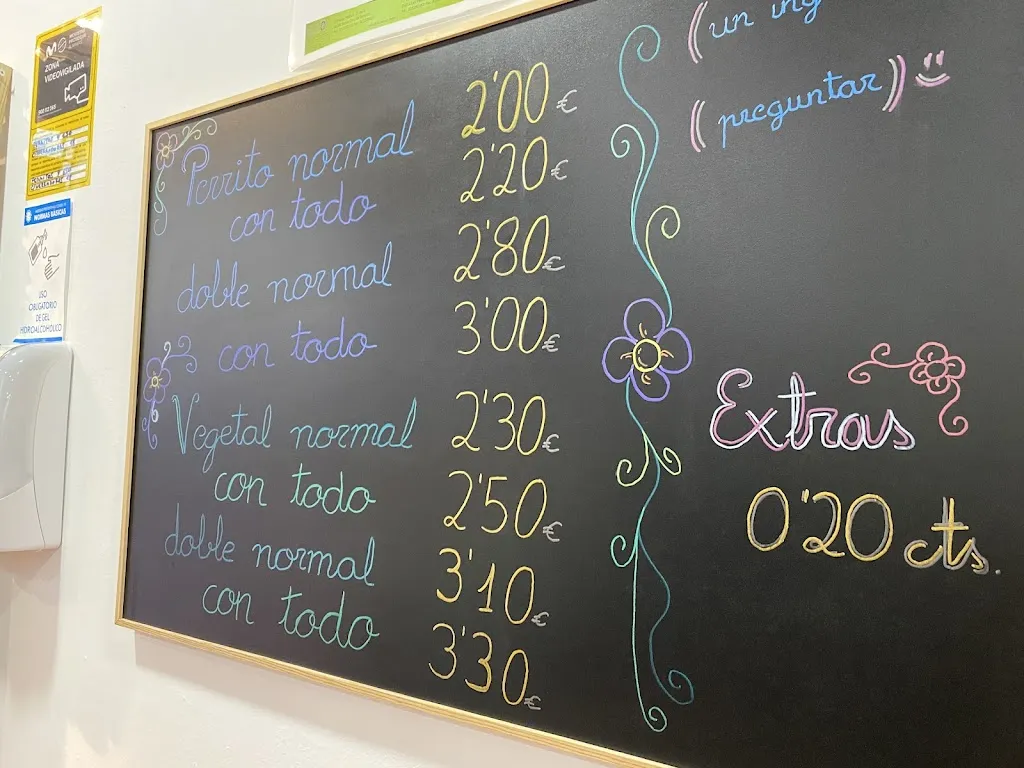 ZONA
VIDEOVIGILADA
NORMAS BÁSICAS
USO
OBLIGATORIO
DE GEL
HIDROALCOHÓLICO
Perrito normal 2'00 €
con todo 2'20 €
doble normal 2'80 €
con todo 3'00 €
Vegetal normal 2'30 €
con todo 2'50 €
doble normal 3'10 €
con todo 3'30 €
(un ing
(preguntar)
Extras
0'20 cts.